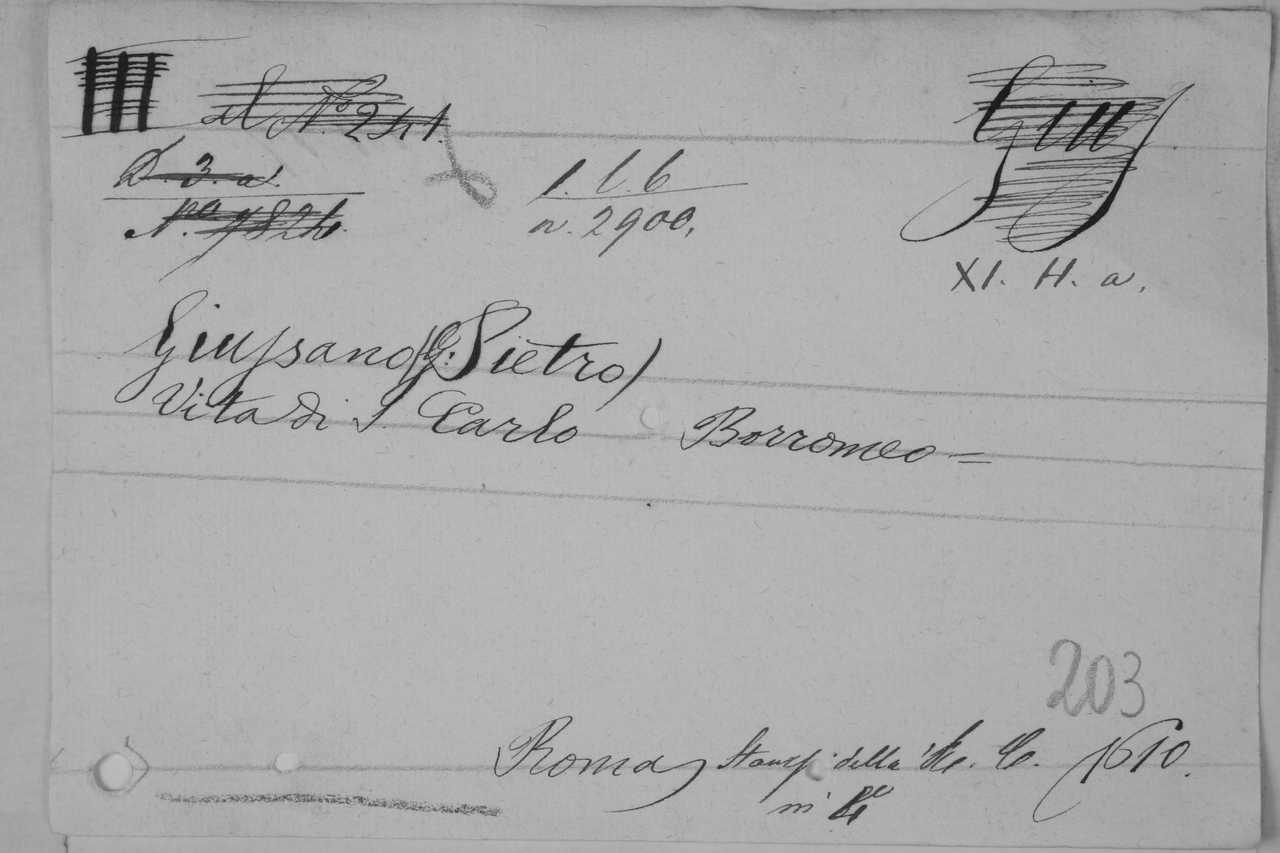 III
N.º 241.
Giu
D. 3. a.
1. l. 6
N.º 7824.
n. 2900.
XI. H. a.
Giussano (G: Pietro)
Vita di S. Carlo Borromeo =
203
Roma, Stamp. della R. C. 1610.
in 4º